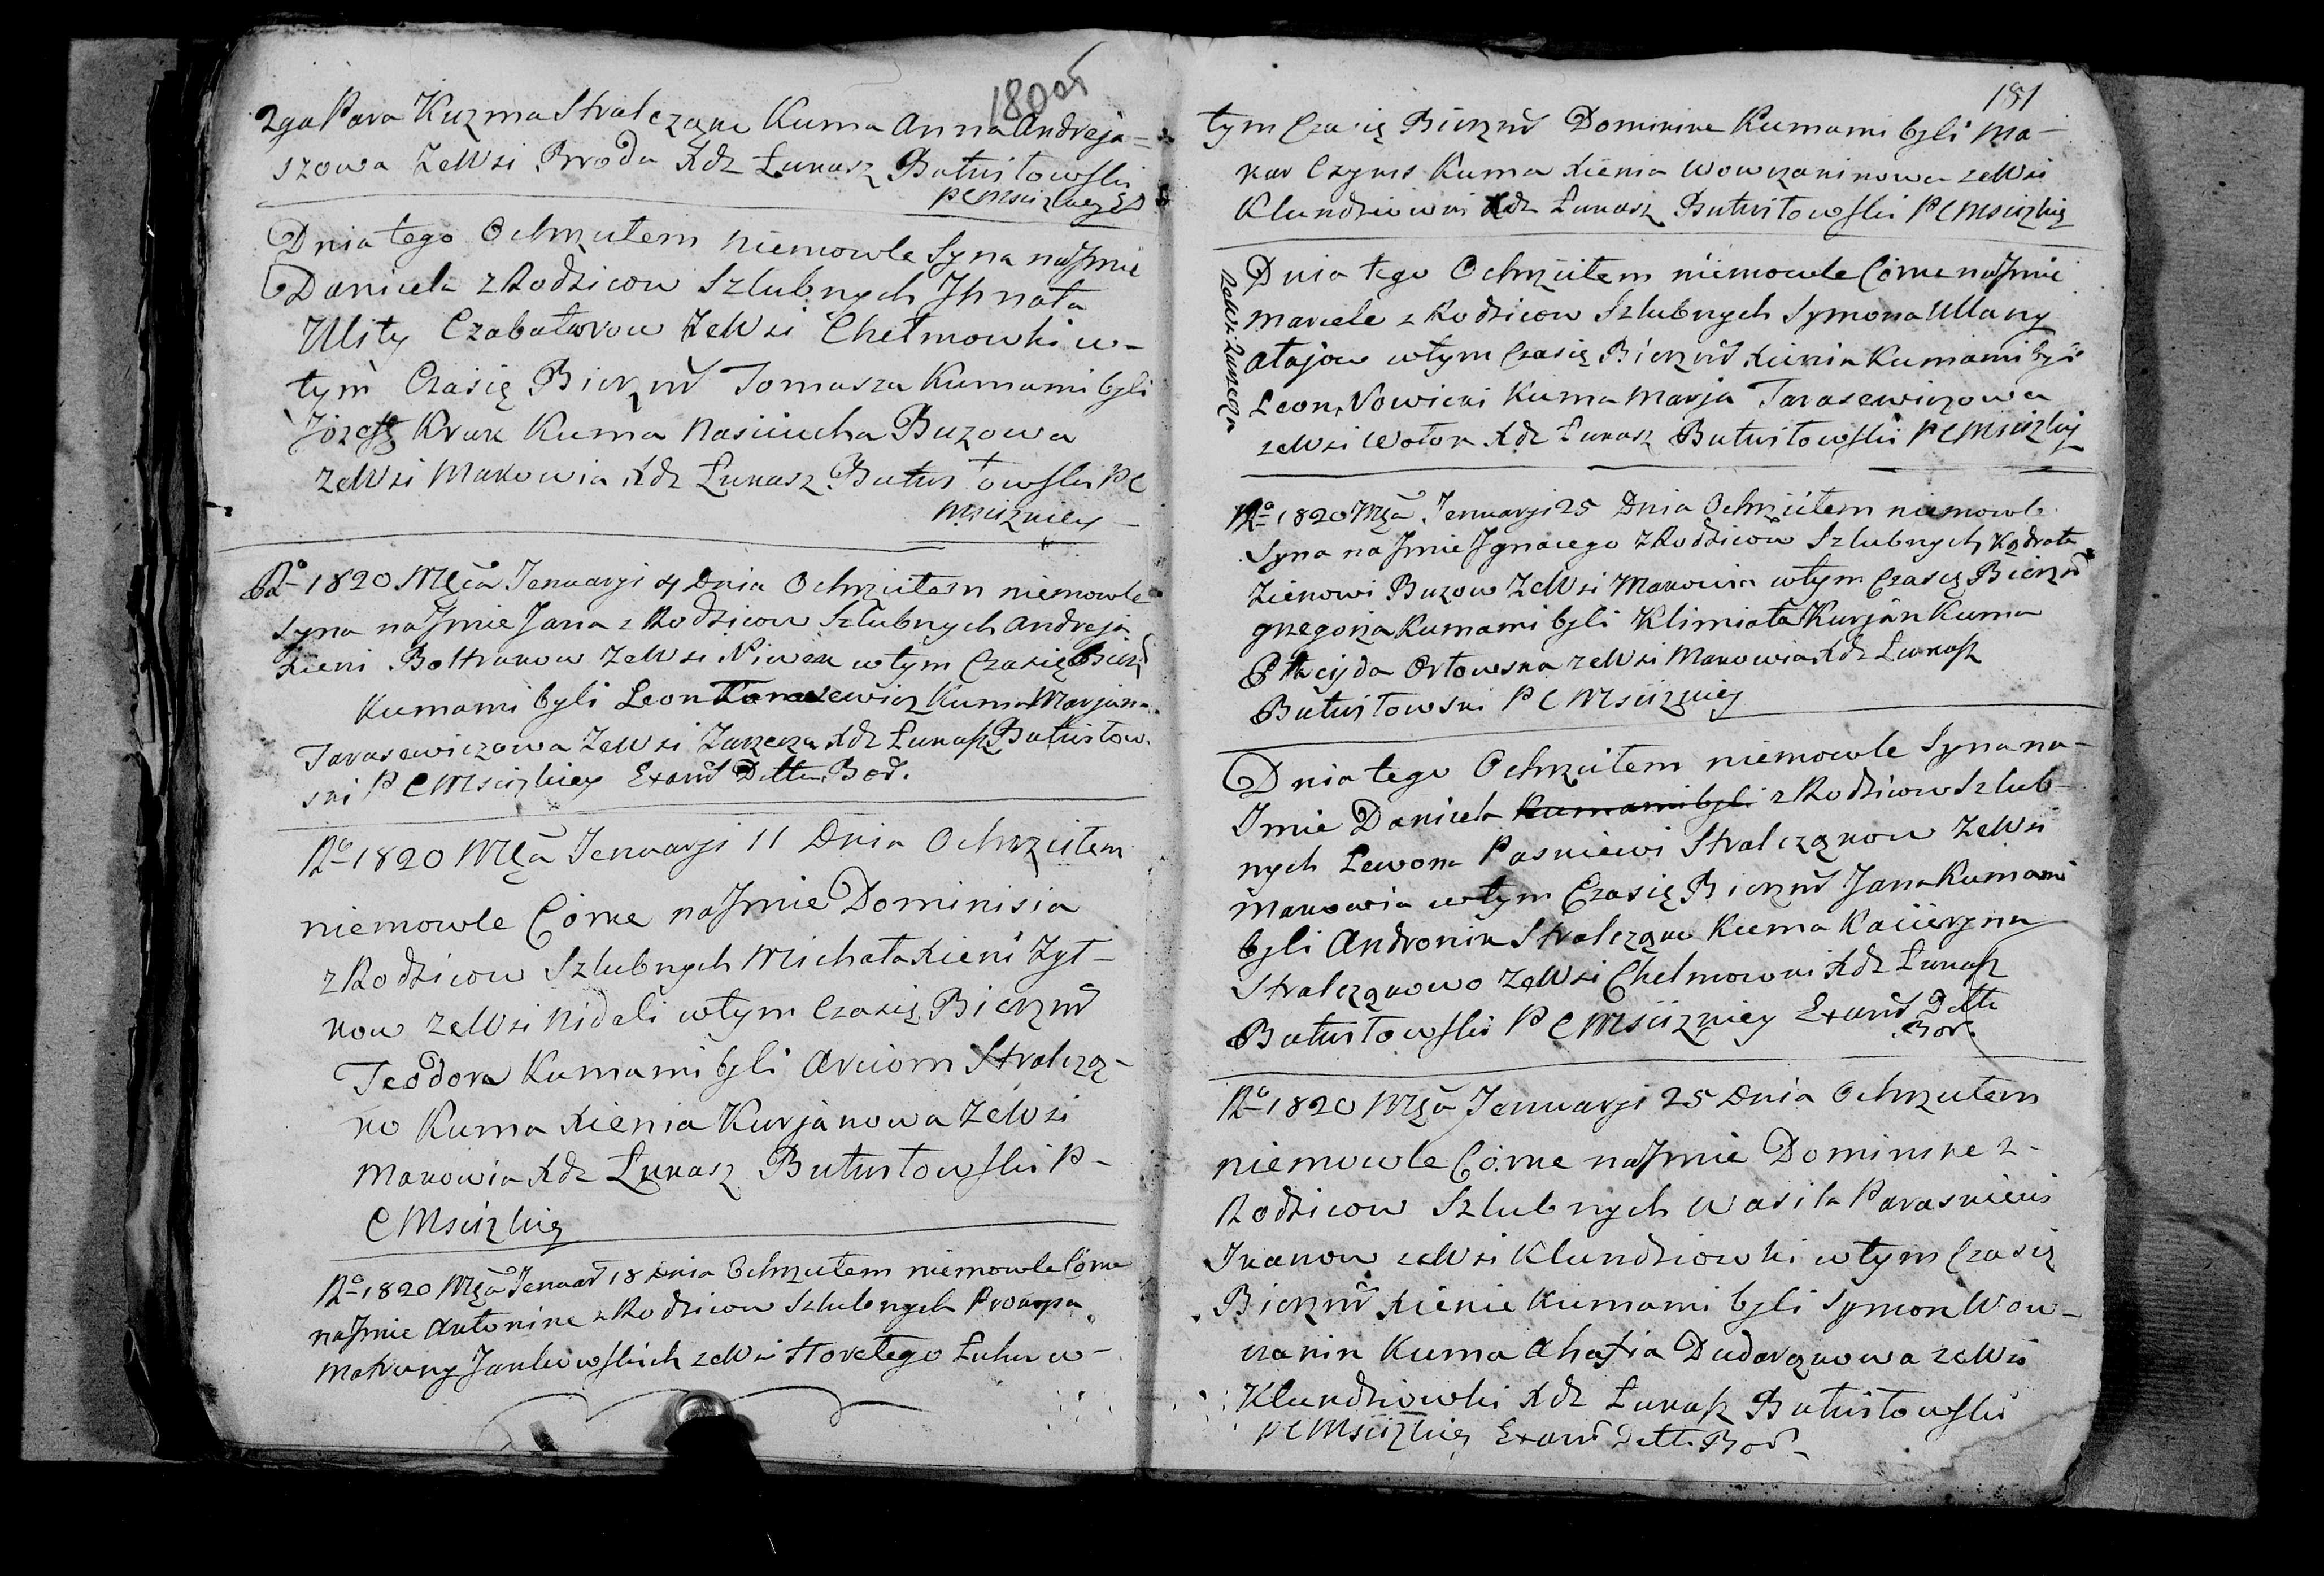 180 об
2ga Para Kuzma Stralcząnu Kuma Anna Andreja=
szowa ZeWsi Broda Xdz Łukasz Butwiłowski
PCMsciżkiey
Dnia tego Ochrzciłem niemowle Syna naJmie
Daniela z Rodzicow Szlubnych Jhnata
Ulity Czabatarow ZeWsi Chełmowki w-
tym Czasię Bierzm̃ Tomasza Kumami byli
Józef Kruk Kuma Nasciucha Buzowa
ZeWsi Makowia Xdz Łukasz Butwiłowski PC
Msciżkiey
Ro 1820 Męca Jenuarji 4 Dnia Ochrzciłem niemowle
Syna naJmie Jana z Rodzicow Szlubnych Andreja
Xieni Bołtrukow ZeWsi Niwek wtym Czasię Bierz
Kumami byli Leon Tarasewicz Kuma Marjana
Tarasewiczowa ZeWsi Zarzecza Xdz Łukasz Butwiłow-
ski PCMsciżkiey Exand Dettn Bod.
Ro 1820 Męca Jenuarji 11 Dnia Ochrzciłem
niemowle Córke naJmie Dominisia
z Rodzicow Szlubnych Michała Xieni Zyt-
kow ZeWsi Nidali wtym Czasię Bierzm̃
Teodora Kumami byli Arciom Stralczą-
ko Kuma Xienia Kurjanowa ZeWsi
Makowia Xdz Łukasz Butwiłowski P-
C Msciżkię
Ro 1820 Męca Jenuar 18 Dnia Ochrzciłem niemowle Córke
naJmie Antonine z Rodzicow Szlubnych Prokopa
Matruny Jankowskich zeWsi Horełego Łuhu w-
181
tym Czasię Bierzm̃ Dominike Kumami byli Ma-
kar Czyrus Kuma Xienia Wowczaninowa zeWsi
Klundziowki Xdz Łukasz Butwiłowski PCMsciżkię
Dnia tego Ochrzciłem niemowle Córke naJmie
Marcele z Rodzicow Szlubnych Symona Ullany
Atajow wtym Czasię Bierzm̃ Xienia Kumami byli
Leon Nowicki Kuma Marja Tarasewiczowa
zeWsi Wołok Xdz Łukasz Butwiłowski PCMsciżkiy
zeWsi Zarzecza
Ro 1820 Męca Jenuarji 25 Dnia Ochrzciłem niemowle
Syna naJmie Jgnacego z Rodzicow Szlubnych Kądrata
Zienowi Buzow ZeWsi Makowia wtym Czasię Bierzm̃
Grzegorza Kumami byli Klimiata Kurján Kuma
Płacijda Orłowska zeWsi Makowia Xdz Łukasz
Butwiłowski PCMsciżkiey
Dnia tego Ochrzciłem niemowle Syna na-
Jmie Daniela Kumami byli z Rodzicow Szlub-
nych Lewona Pasniewi Stralcząkow ZeWsi
Makowia wtym Czasię Bierzm̃ Jana Kumami
byli Andronik Stralcząnu Kuma Kacieryna
Stralcząkowo ZeWsi Chełmowki Xdz Łukasz
Butwiłowski PCMsciżkiey Exand Dettn
Bod.
Ro 1820 Męca Jenuarji 25 Dnia Ochrzciłem
niemowle Córke naJmie Dominike z-
Rodzicow Szlubnych Wasila Paraskiewi
Jwanow zeWsi Klundziowki wtym Czasię
Bierzm̃ Xienie Kumami byli Symon Wow-
czanin Kuma Ahafia Dudarąkowa zeWsi
Klundziowki Xdz Łukasz Butwiłowski
PCMsciżkiey Exand Dettn Bod